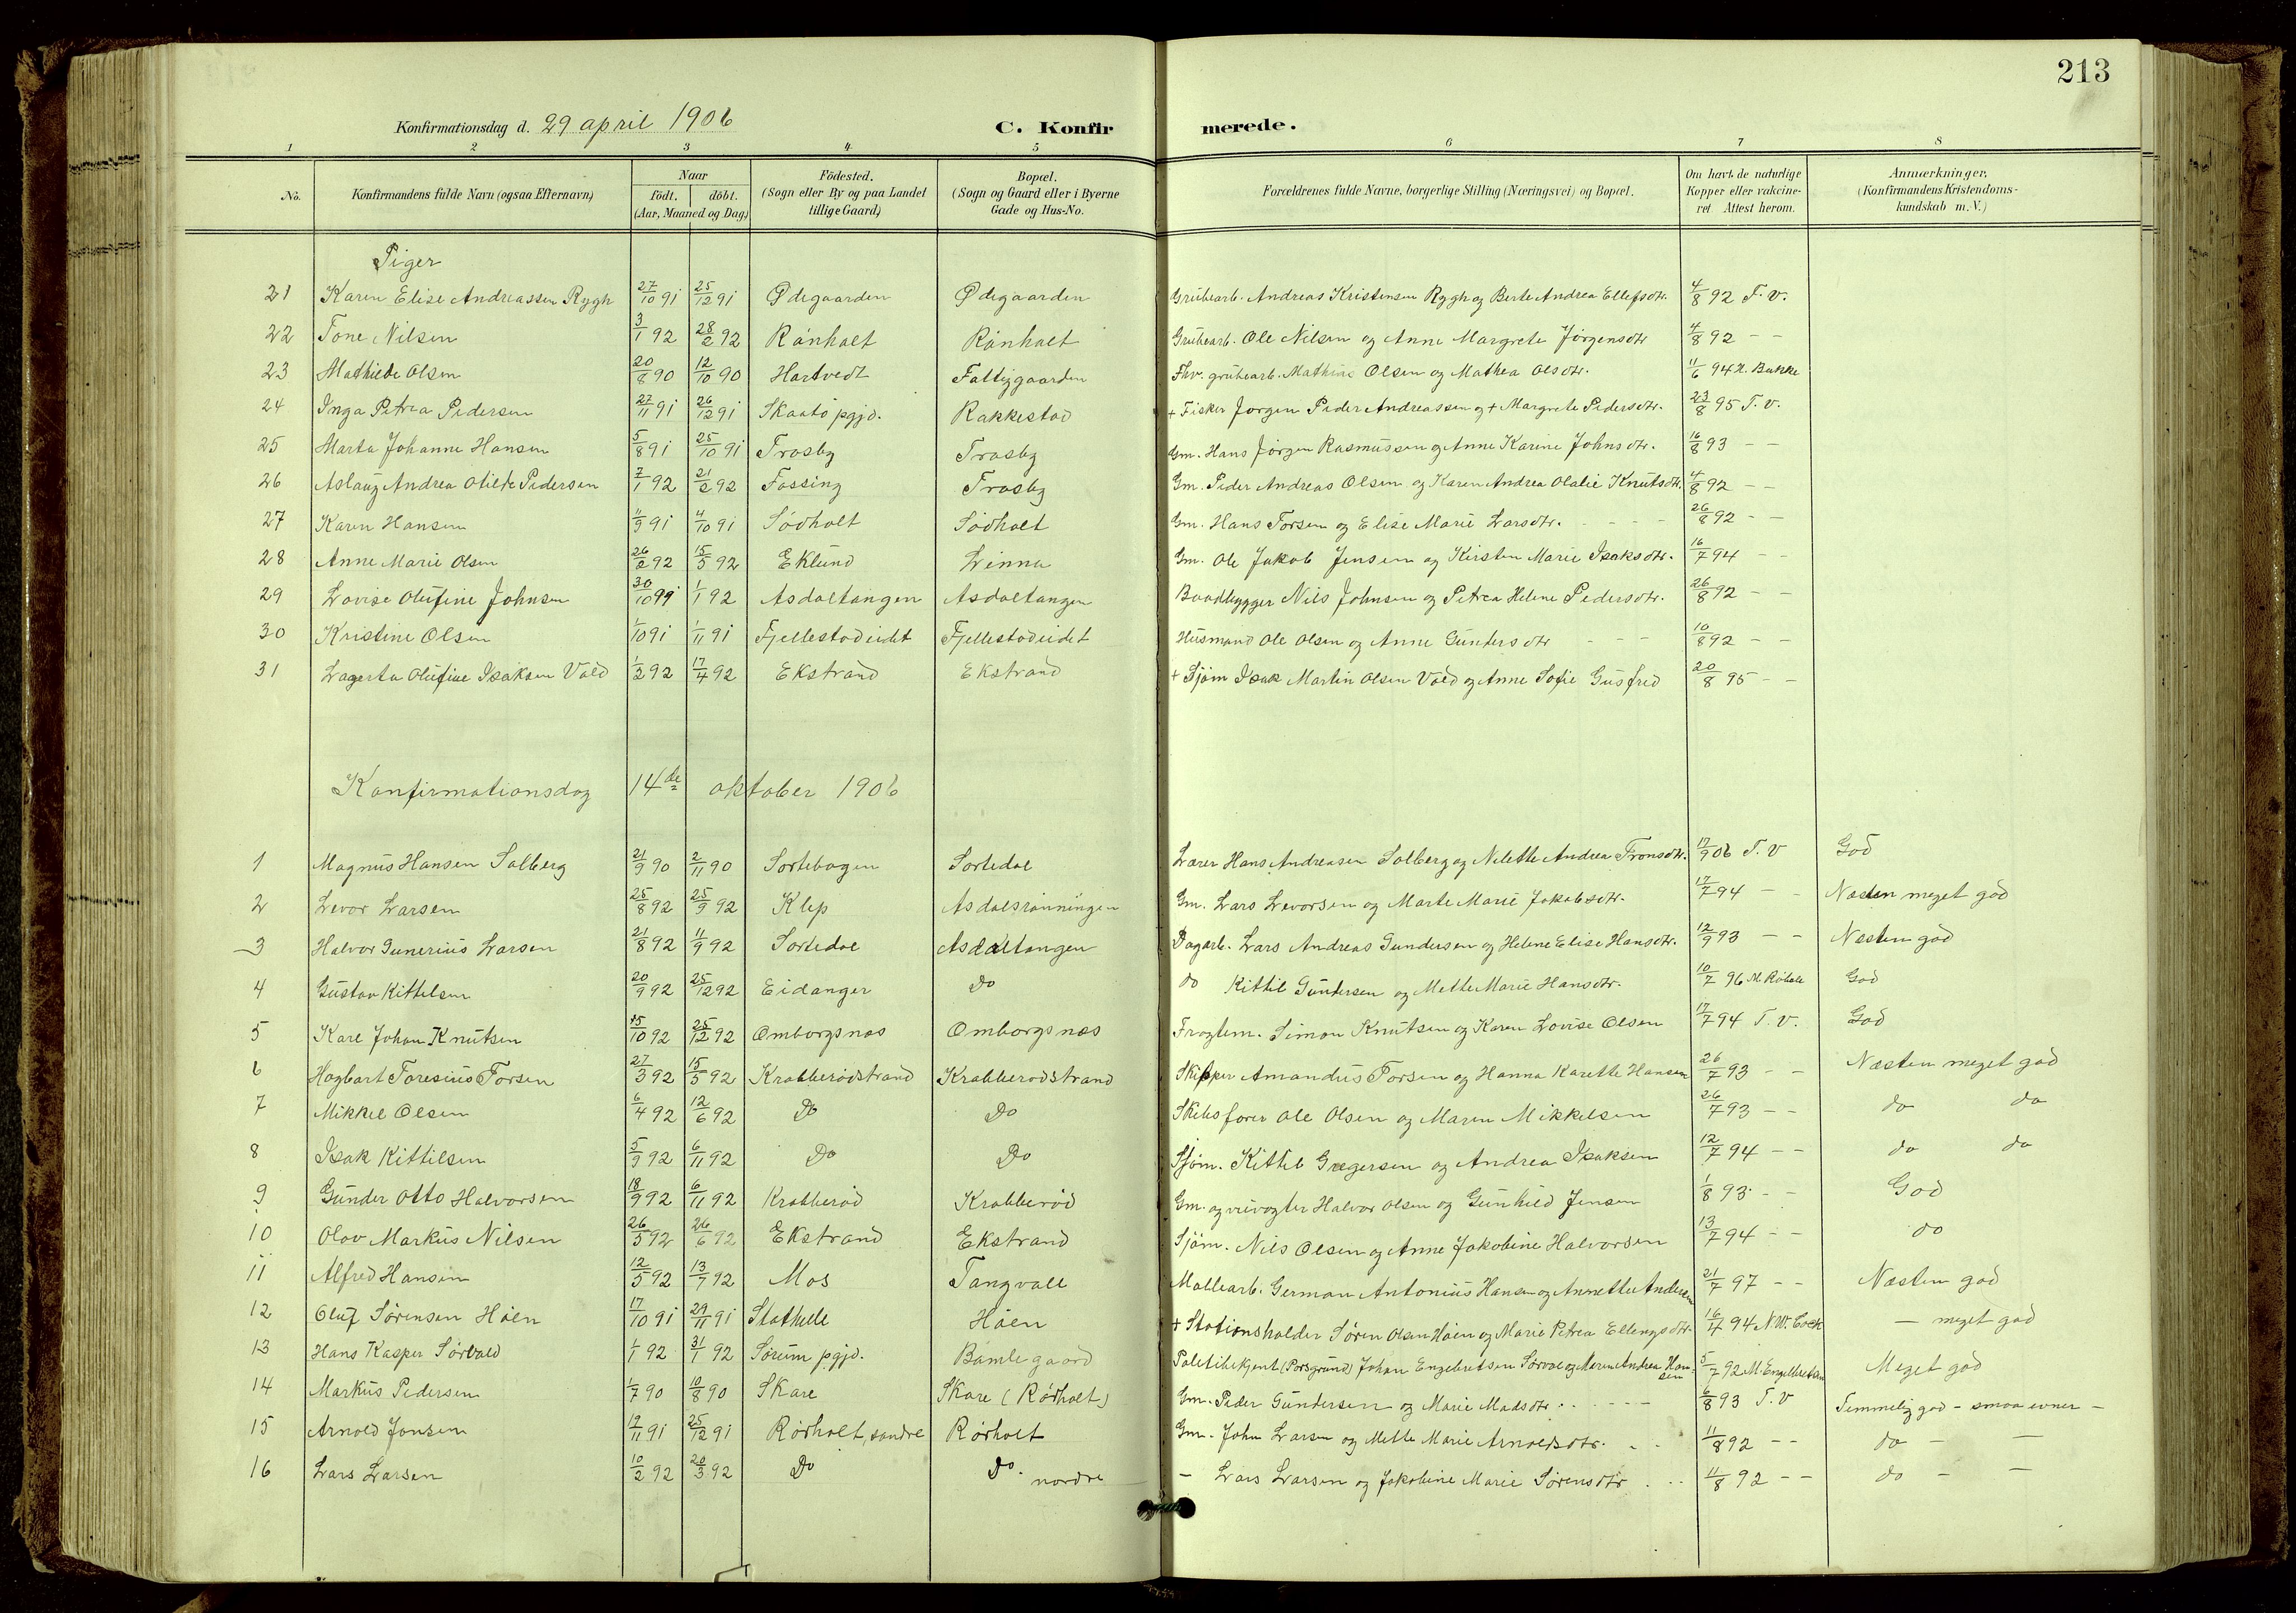 213
Konfirmationsdag d. 29 april 1906 C. Konfirmerede.
1 2 3 4 5 6 7 8
No. Konfirmandens fulde Navn (ogsaa Efternavn) Naar födt. döbt. (Aar, Maaned og Dag) Födested. (Sogn eller By og paa Landet tillige Gaard) Bopæl. (Sogn og Gaard eller i Byerne Gade og Hus-No. Forældrenes fulde Navne, borgerlige Stilling (Næringsvei) og Bopæl. Om havt de naturlige Kopper eller vakcineret Attest herom. Anmærkninger. (Konfirmandens Kristendomskundskab m. V.)
Piger
21 Karen Elise Andreassen Rygh 27/10 91 25/12 91 Ødegaarden Ødegaarden Grubearb. Andreas Kristensen Rygh og Berte Andrea Ellefsdtr. 4/8 92 T. V.
22 Tone Nilsen 3/1 92 28/2 92 Rönholt Rönholt Grubearb. Ole Nilsen og Anne Margrete Jörgensdtr 4/8 92 - -
23 Mathilde Olsen 20/8 90 12/10 90 Hartvedt Fattiggaarden Fhv. grubearb. Mathias Olsen og Mathea Olsdtr. 11/6 94 H. Bakke
24 Inga Petrea Pedersen 27/11 91 26/12 91 Skaatö pgjd. Rakkestad + Fisker Jörgen Peder Andreassen og + Margrete Pedersdtr. 23/8 95 T. V.
25 Marta Johanne Hansen 5/8 91 25/10 91 Trosby Trosby Gm. Hans Jörgen Rasmussen og Anne Karine Johnsdtr. 16/8 93 - -
26 Aslaug Andrea Otilde Pedersen 7/1 92 21/2 92 Fossing Trosby Gm. Peder Andreas Olsen og Karen Andrea Olalie Knutsdtr. 4/8 92 - -
27 Karen Hansen 11/9 91 4/10 91 Södholt Södholt Gm. Hans Torsen og Elise Marie Larsdtr. 26/8 92 - -
28 Anne Marie Olsen 26/2 92 15/5 92 Eklund Linna Gm. Ole Jakob Jensen og Kirsten Marie Isaksdtr. 16/7 94 - -
29 Lovise Olufine Johnsen 30/10 91 1/1 92 Asdaltangen Asdaltangen Baadbygger Nils Johnsen og Petrea Helene Pedersdtr. 26/8 92 - -
30 Kristine Olsen 1/10 91 1/11 91 Fjellestadeidet Fjellestadeidet Husmand Ole Olsen og Anne Gundersdtr 10/8 92 - -
31 Lagerta Olufine Isaksen Vold 1/2 92 17/4 92 Ekstrand Ekstrand + Sjöm Isak Martin Olsen Vold og Anne Sofie Gusfred 20/8 95 - -
Konfirmationsdag 14de oktober 1906
1 Magnus Hansen Solberg 21/9 90 2/11 90 Sortebogen Sortedal Lærer Hans Andreasen Solberg og Nilette Andrea Tronsdtr. 17/9 06 T. V God
2 Levor Larsen 25/8 92 25/9 92 Klep Asdalsrönningen Gm. Lars Levorsen og Marte Marie Jakobsdtr. 17/7 94 - - Næsten meget god
3 Halvor Gunerius Larsen 21/8 92 11/9 92 Sortedal Asdaltangen Dagarb. Lars Andreas Gundersen og Helene Elise Hansdtr. 12/9 93 - - Næsten god
4 Gustav Kittelsen 20/9 92 25/12 92 Eidanger Do do Kittil Gundersen og Mette Marie Hansdtr. 10/7 96 God
5 Karl Johan Knutsen 15/10 92 25/12 92 Omborgsnæs Omborgsnæs Fragtem. Simon Knutsen og Karen Lovise Olsen 17/7 94 T. V. God
6 Hagbart Toresius Torsen 27/3 92 15/5 92 Krabberödstrand Krabberödstrand Skipper Amandus Torsen og Hanna Karette Hansen 26/7 93 - - Næsten meget god
7 Mikkel Olsen 6/4 92 12/6 92 Do Do Skibsförer Ole Olsen og Maren Mikkelsen 26/7 93 - - do do
8 Isak Kittilsen 5/9 92 6/11 92 Do Do Sjöm. Kittil Gregersen og Andrea Isaksen 12/7 94 - - do do
9 Gunder Otto Halvorsen 18/9 92 6/11 92 Krabberöd Krabberöd Gm. og veivogter Halvor Olsen og Gunhild Jensen 1/8 93 - - God
10 Olav Markus Nilsen 26/5 92 26/6 92 Ekstrand Ekstrand Sjöm. Nils Olsen og Anne Jakobine Halvorsen 13/7 94 - - do
11 Alfred Hansen 12/5 92 13/7 92 Mos Tangvall Möllearb. German Antonius Hansen og Annette Andersen 21/7 97 - - Næsten god
12 Oluf Sörensen Höen 17/10 91 29/11 91 Stathelle Höen + Stationsholder Sören Olsen Höen og Marie Petrea Ellengsdtr. 16/4 94 - meget god
13 Hans Kasper Sörvald 1/1 92 31/1 92 Sörum pgjd. Bamle gaard Politibetjent (Porsgrund) Johan Engebretsen Sörval og Maren Andrea Hansen 5/7 92 M. Engelbretsen Meget god
14 Markus Pedersen 1/7 90 10/8 90 Skare Skare (Rörholt) Gm. Peder Gundersen og Marie Madsdtr. 6/8 93 T. V Temmelig god - smaa evner -
15 Arnold Jonsen 19/11 91 25/12 91 Rörholt, söndre Rörholt Gm. John Larsen og Mette Marie Arnoldsdtr. 11/8 92 - - do - -
16 Lars Larsen 10/2 92 20/3 92 Do Do. nordre - Lars Larsen og Jakobine Marie Sörensdtr 11/8 92 - - do - -